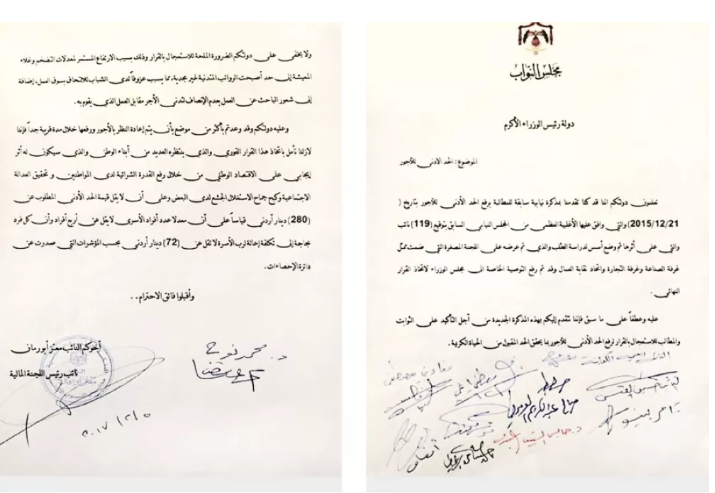 مجلس النواب
دولة رئيس الوزراء الأكرم
الموضوع: الحد الادنى للأجور
تعلمون دولتكم اننا قد كنا تقدمنا بمذكرة نيابية سابقة للمطالبة برفع الحد الأدنى للأجور بتاريخ (
2015/12/21) والتي وافق عليها الأغلبية العظمى من المجلس النيابي السابق بتوقيع (119) نائب
والتي على أثرها تم وضع أسس لدراسة الطلب والذي تم عرضه على اللجنة المصغرة التي ضمت ممثل
غرفة الصناعة وغرفة التجارة واتحاد نقابة العمال وقد تم رفع التوصية الخاصة الى مجلس الوزراء لاتخاذ القرار
النهائي .
عليه وعطفاً على ما سبق فإننا نتقدم إليكم بهذه المذكرة الجديدة من أجل التأكيد على الثوابت
والمطالب للاستعجال بالقرار لرفع الحد الأدنى للأجور بما يحقق الحد المقبول من الحياة الكريمة.
ولا يخفى على دولتكم الضرورة الملحة للاستعجال بالقرار وذلك بسبب الارتفاع المستمر لمعدلات التضخم وغلاء
المعيشة إلى حد أصبحت الرواتب المتدنية غير مجدية، مما يسبب عزوفاً لدى الشباب للالتحاق بسوق العمل، إضافة
إلى شعور الباحث عن العمل بعدم الإنصاف لتدني الأجر مقابل العمل الذي يقوم به.
وعليه دولتكم وقد وعدتم بأكثر من موضع بأن يتم إعادة النظر بالأجور ورفعها خلال مدة قريبة جداً فإننا
لازلنا نأمل باتخاذ هذا القرار الفوري والذي ينتظره العديد من أبناء الوطن والذي سيكون له أثر
إيجابي على الاقتصاد الوطني من خلال رفع القدرة الشرائية لدى المواطنين و تحقيق العدالة
الاجتماعية وكبح جماح الاستغلال الجشع لدى البعض وعلى أن لا يقل قيمة الحد الأدنى المطلوب عن
(280) دينار أردني قياساً على أن معدل عدد أفراد الأسرى لا يقل عن أربع أفراد وأن كل فرد
بحاجة إلى تكلفة إعانة لرب الأسرة لا تقل عن (72) دينار أردني بحسب المؤشرات التي صدرت عن
دائرة الإحصاءات.
وأقبلوا فائق الاحترام..
أخوكم النائب معتز أبو رمان
نائب رئيس اللجنة المالية
د. محمد نوح